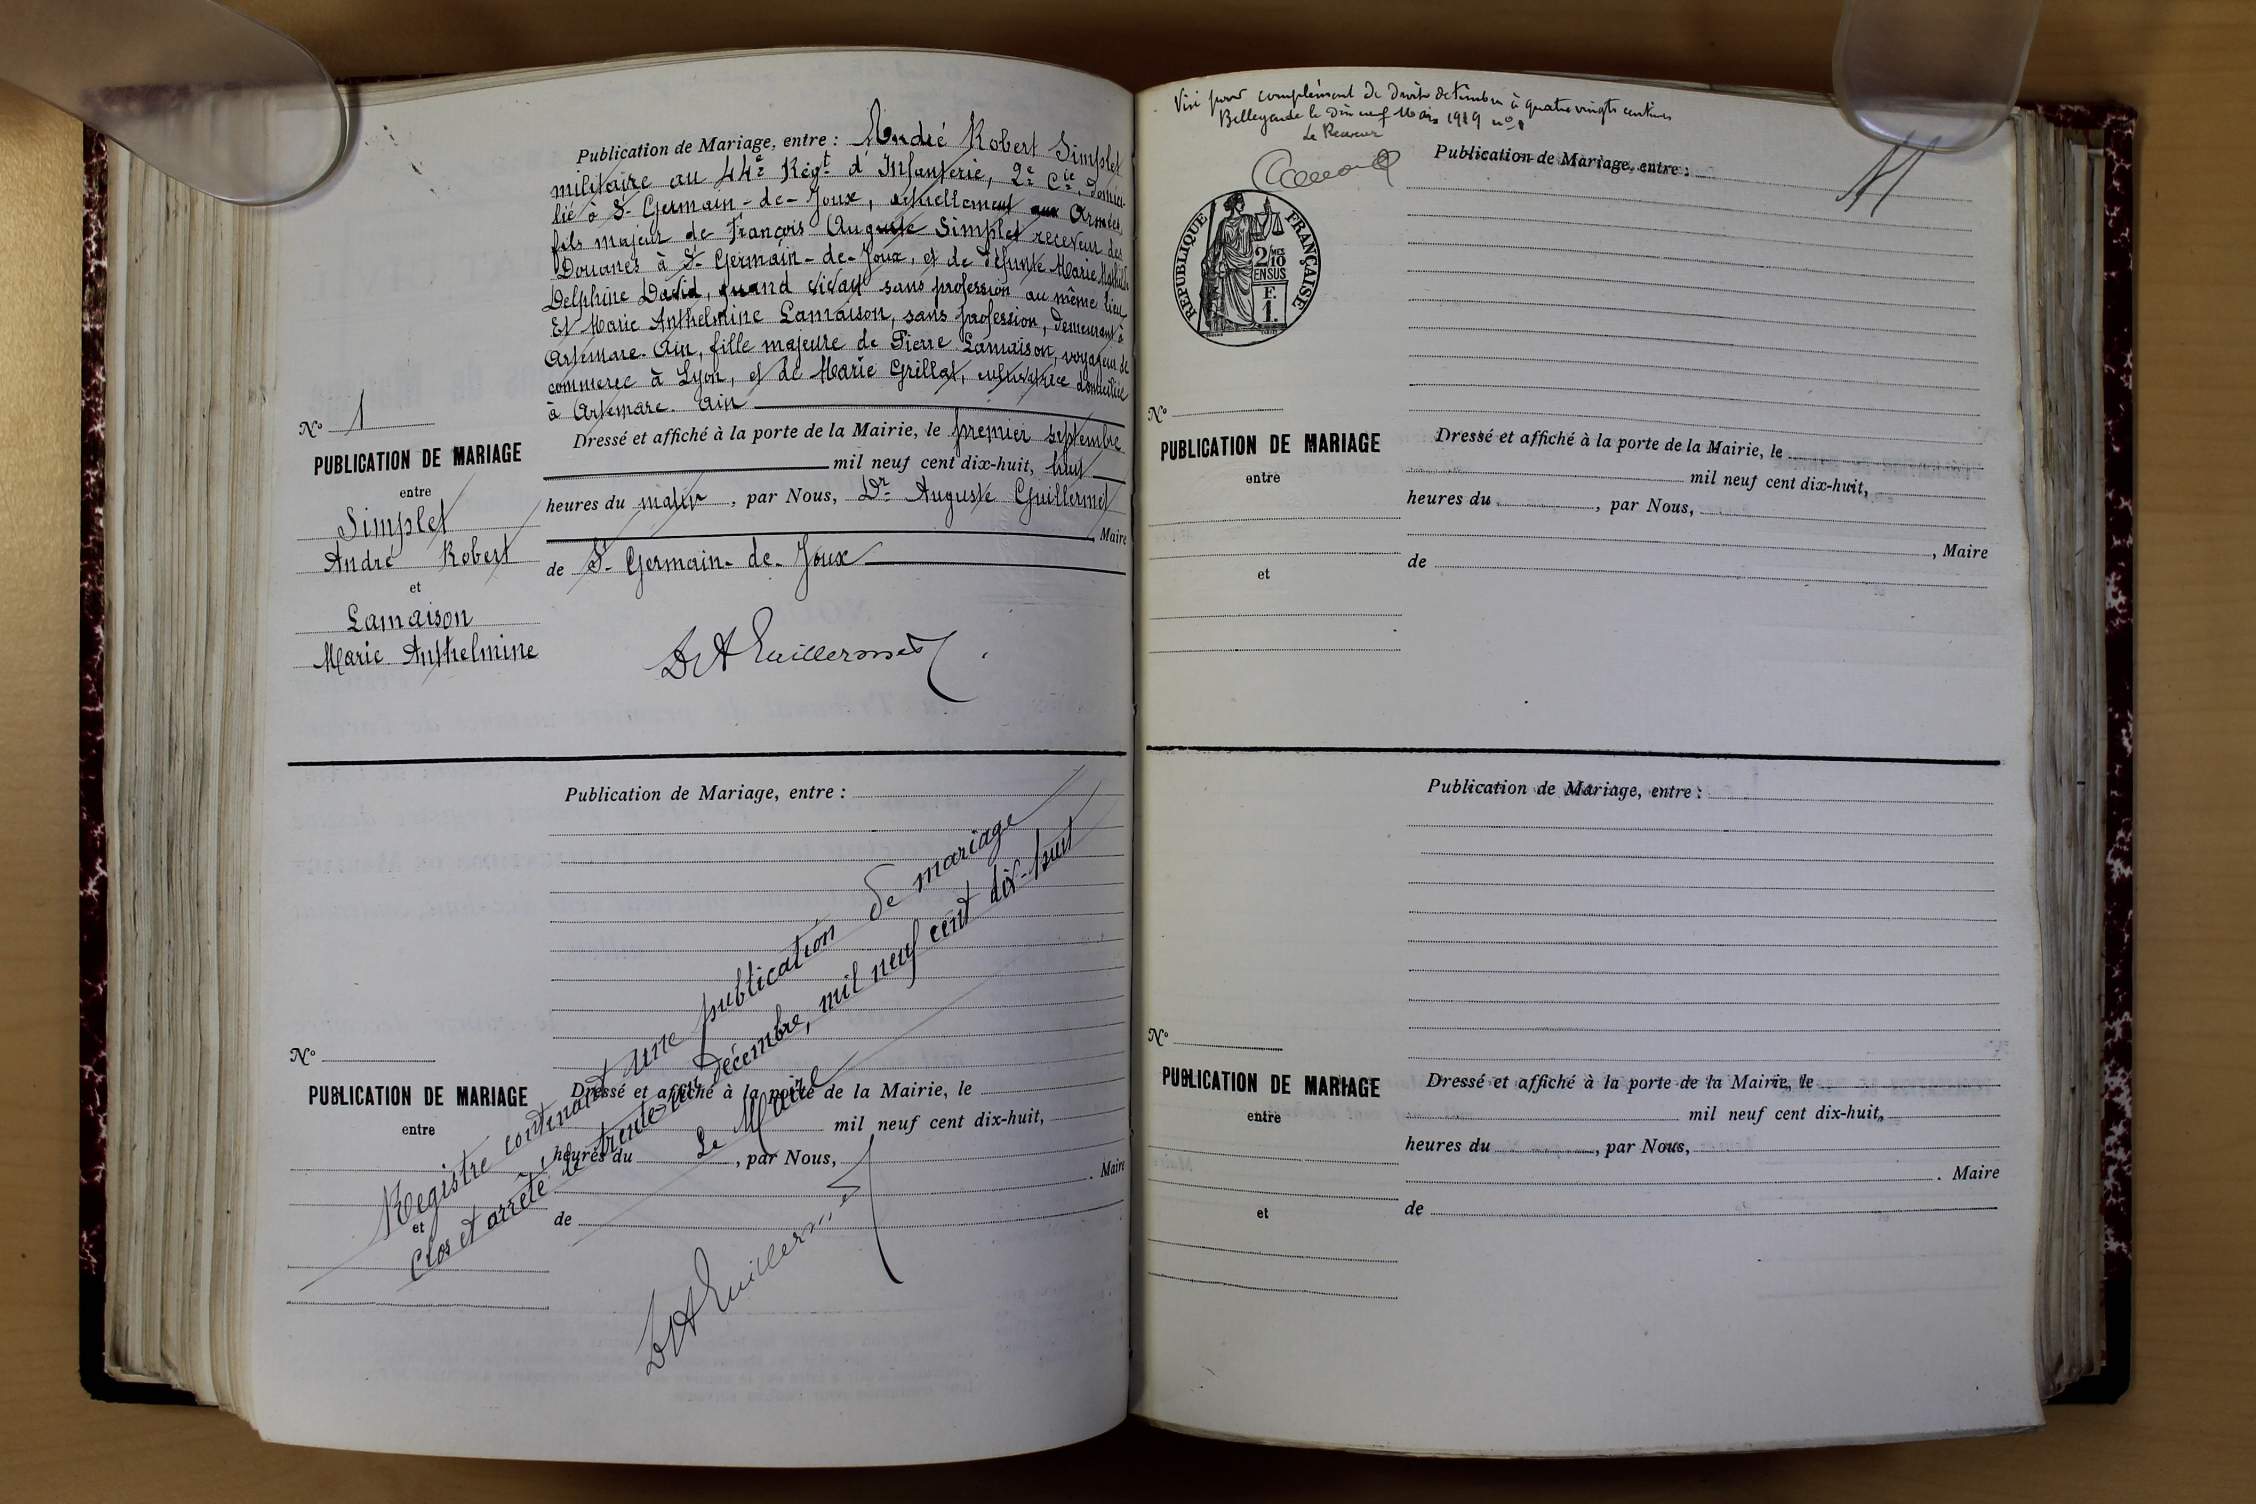 Publication de Mariage, entre : André Robert Simplet
militaire au 44e Régt d'Infanterie, 2e Cie, domici-
lié à St-Germain-de-Joux, actuellement aux Armées,
fils majeur de François Auguste Simplet receveur des
Douanes à St-Germain-de-Joux, et de défunte Marie Mathilde
Delphine David, quand vivait sans profession au même lieu
Et Marie Anthelmine Lamaison, sans profession, demeurant à
Artemare. Ain, fille majeure de Pierre Lamaison, voyageur de
commerce à Lyon, et de Marie Grillat, cultivatrice domiciliée
à Artemare. Ain
Dressé et affiché à la porte de la Mairie, le premier septembre
mil neuf cent dix-huit, huit
heures du matin, par Nous, Dr Auguste Guillermet
Maire
de St-Germain-de-Joux
Dr A Guillermet
N° 1
PUBLICATION DE MARIAGE
entre
Simplet
André Robert
et
Lamaison
Marie Anthelmine
Publication de Mariage, entre :
N°
PUBLICATION DE MARIAGE
entre
et
Dressé et affiché à la porte de la Mairie, le
mil neuf cent dix-huit,
heures du , par Nous,
. Maire
de
Registre contenant une publication de mariage
Clos et arrêté, le trente-un décembre, mil neuf cent dix-huit
Le Maire
Dr A Guillermet
Visé pour complément de droits de timbre à quatre vingts centimes
Bellegarde le dix neuf Mars 1919 n° 8
Le Receveur
RÉPUBLIQUE FRANÇAISE
2/10 MES
EN SUS
F.
1.
Publication de Mariage, entre :
N°
PUBLICATION DE MARIAGE
entre
et
Dressé et affiché à la porte de la Mairie, le
mil neuf cent dix-huit,
heures du , par Nous,
, Maire
de
Publication de Mariage, entre :
N°
PUBLICATION DE MARIAGE
entre
et
Dressé et affiché à la porte de la Mairie, le
mil neuf cent dix-huit,
heures du , par Nous,
. Maire
de